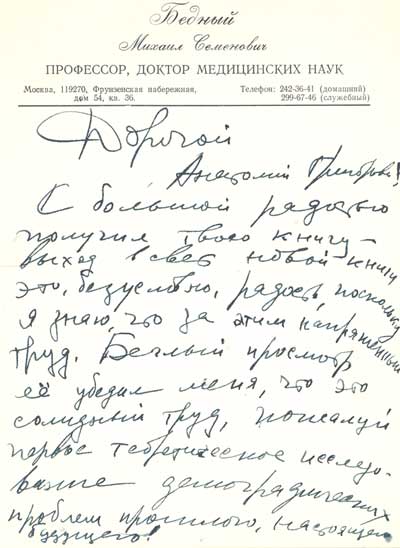 Бедный
Михаил Семенович
ПРОФЕССОР, ДОКТОР МЕДИЦИНСКИХ НАУК
Москва, 119270, Фрунзенская набережная, Телефон: 242-36-41 (домашний)
дом 54, кв. 36. 299-67-46 (служебный)
Дорогой
Анатолий Григорьевич!
С большой радостью
получил твою книгу –
выход в свет новой книги
это, безусловно, радость, поскольку
я знаю, что за этим напряженный
труд. Беглый просмотр
её убедил меня, что это
солидный труд, пожалуй
первое теоретическое исследо-
вание демографических
проблем прошлого, настоящего
будущего!